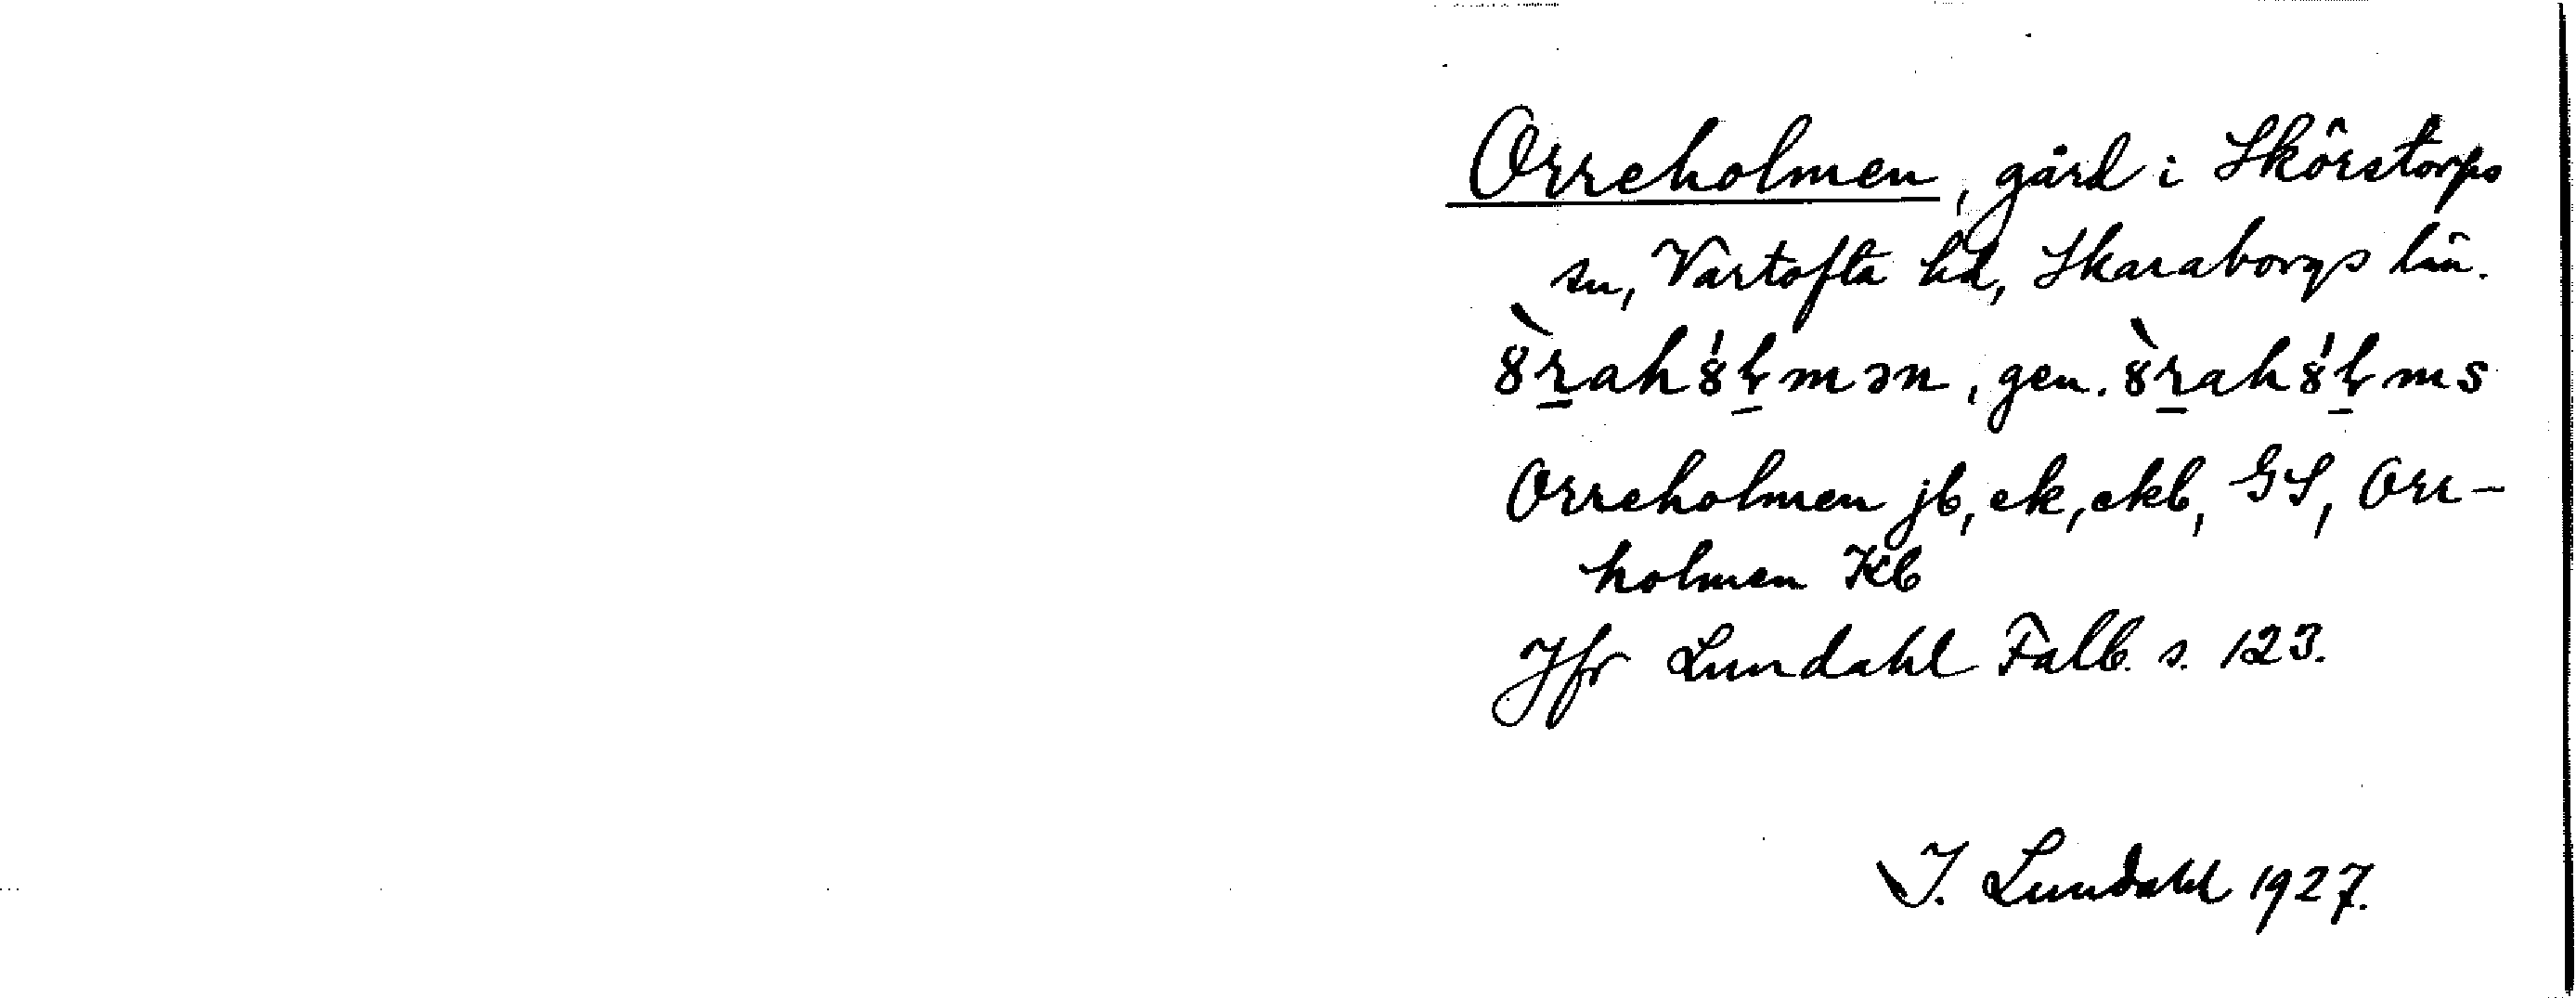 Orreholmen, gård i Skörstorps
sn, Vartofta hd, Skaraborgs län.
gen.
Orreholmen jb, ek, ekb, GS, Orr-
holmen Kb
Jfr Lundahl Falb. s. 123.
I. Lundahl 1927.